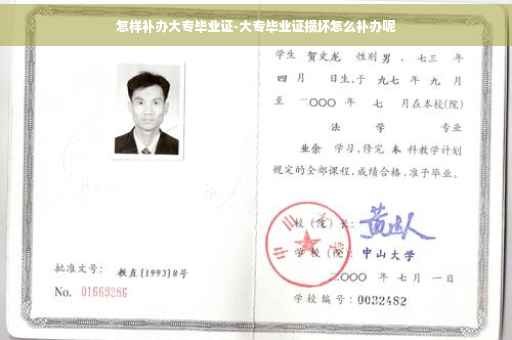 怎样补办大专毕业证-大专毕业证损坏怎么补办呢
学生 贺文龙 性别 男 、七三 年
四 月 日生,于 九七 年 九 月
至 二〇〇〇 年 七 月在本校(院)
法 学 专业
业余 学习,修完 本 科教学计划
规定的全部课程,成绩合格,准予毕业。
校(院)长:
学校(院): 中山大学
二〇〇〇 年 七 月 一 日
学校编号: 0032482
批准文号: 教直[1993]8号
No. 01663286